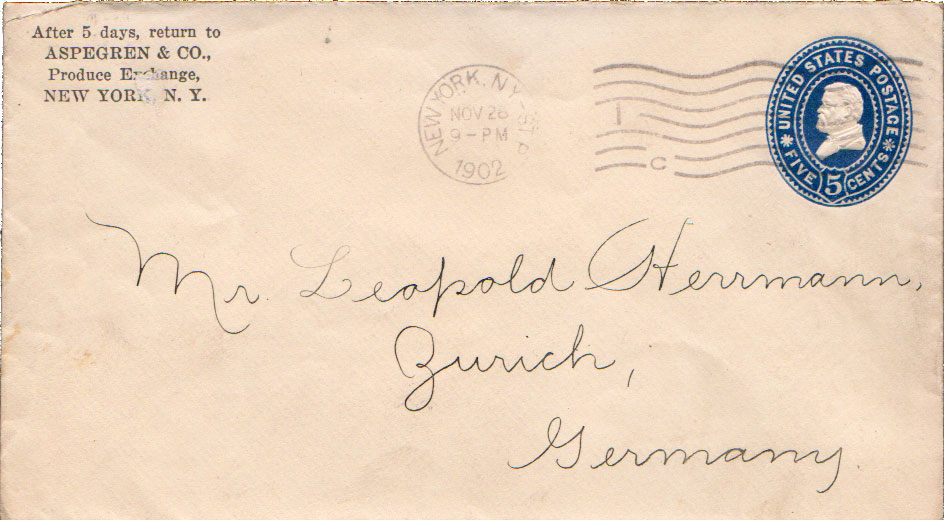 After 5 days, return to
ASPEGREN & CO.,
Produce Exchange,
NEW YORK, N. Y.
NEW YORK, N.Y.
NOV 28
9-PM
1902
C
UNITED STATES POSTAGE
FIVE 5 CENTS
Mr. Leopold Herrmann,
Zurich,
Germany.